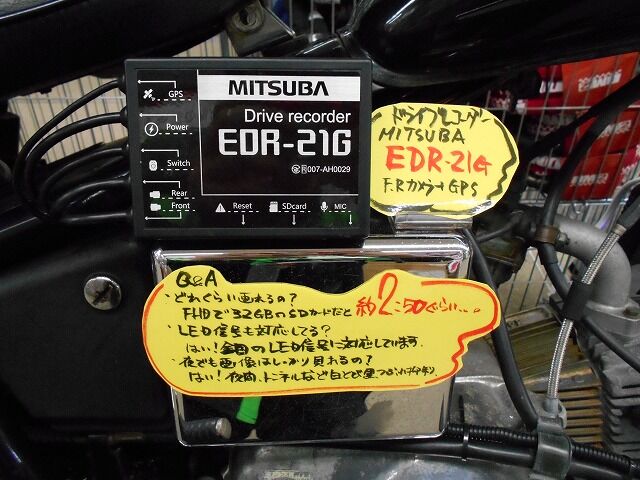 MITSUBA
Drive recorder
EDR-21G
R 007-AH0029
GPS
Power
Switch
Rear
Front
Reset
SDcard
MIC
ドライブレコーダー
MITSUBA
EDR-21G
F.Rカメラ+GPS
Q&A
・どれぐらい画れるの?
FHDで32GBのSDカードだと約2:50ぐらい...
・LED信号も対応してる?
はい!全国のLED信号に対応しています.
・夜でも画像はしっかり見れるの?
はい!夜間、トンネルなど白とび黒つぶれ